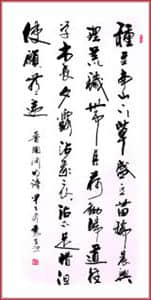 種豆南山下草盛豆苗稀晨興
理荒穢帶月荷鋤歸道狹
草木長夕露沾我衣衣沾不足惜但
使願無違
晉陶淵明詩